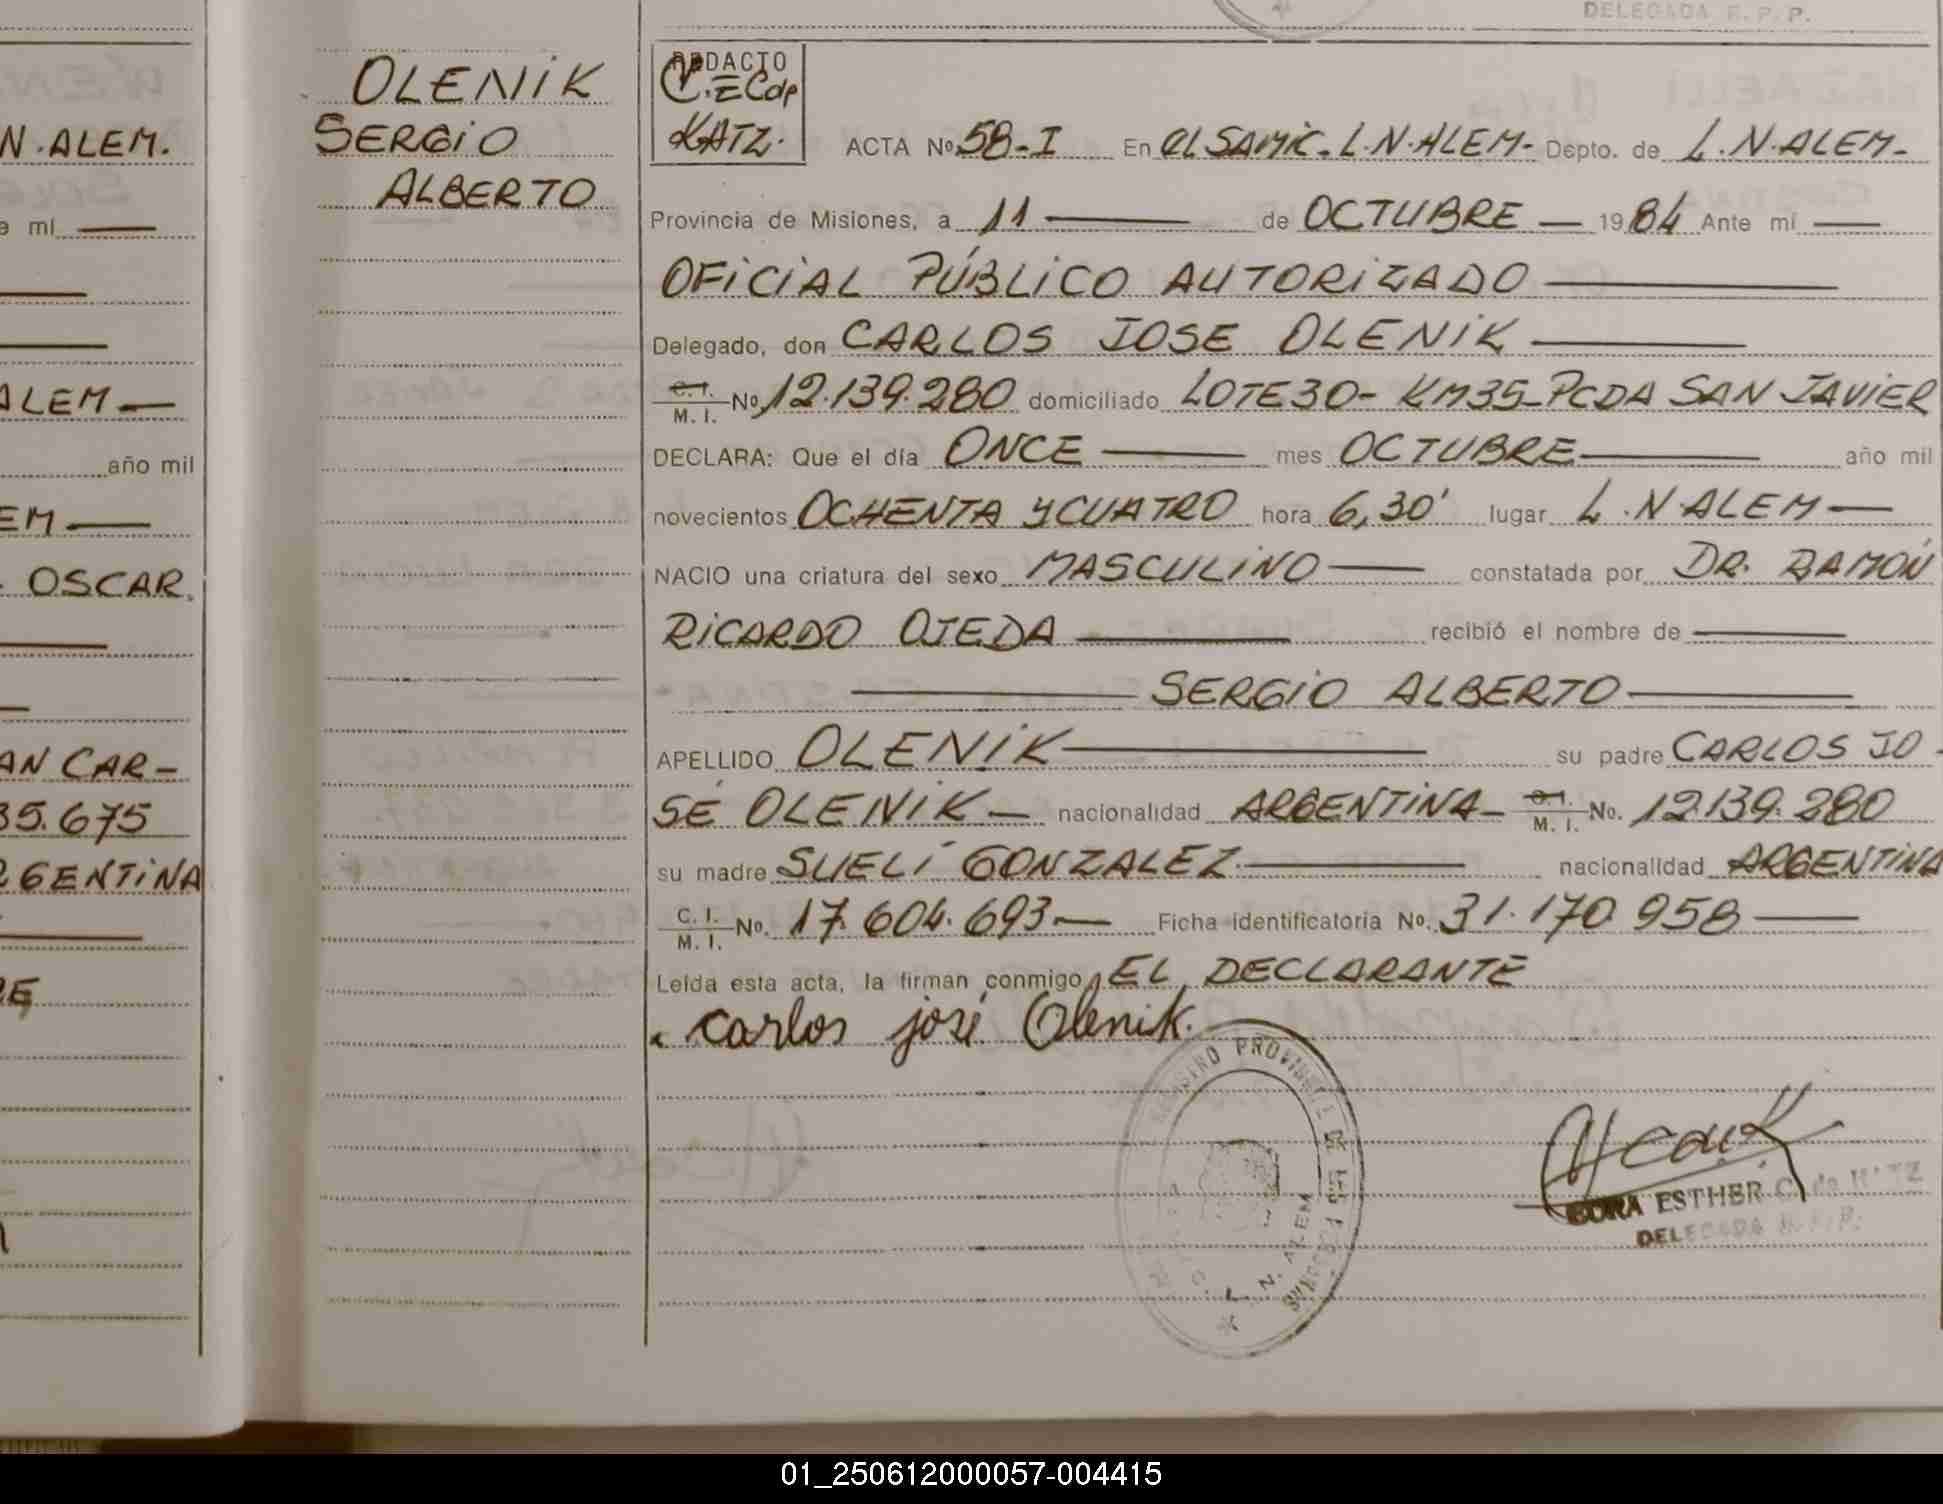 DELEGADA R.P.P.
N. ALEM.
e mí
ALEM
año mil
EM
OSCAR.
AN CAR-
35.675
RGENTINA
RE
OLENIK
SERGIO
ALBERTO
REDACTO
C.E.C de
KATZ.
ACTA Nº 58-I En el SAMIC. L.N. ALEM- Depto. de L.N. ALEM-
Provincia de Misiones, a 11 de OCTUBRE 1984 Ante mí
OFICIAL PÚBLICO AUTORIZADO
Delegado, don CARLOS JOSE OLENIK
C. I. M. I. Nº 12.139.280 domiciliado LOTE 30- KM35-PCDA SAN JAVIER
DECLARA: Que el día ONCE mes OCTUBRE año mil
novecientos OCHENTA Y CUATRO hora 6,30' lugar L. N ALEM
NACIO una criatura del sexo MASCULINO constatada por DR. RAMÓN
RICARDO OJEDA recibió el nombre de
SERGIO ALBERTO
APELLIDO OLENIK su padre CARLOS JO-
SÉ OLENIK nacionalidad ARGENTINA C. I. M. I. No. 12.139.280
su madre SUELI GONZALEZ nacionalidad ARGENTINA
C. I. M. I. No. 17.604.693 Ficha identificatoria Nº. 31.170.958
Leída esta acta, la firman conmigo, EL DECLARANTE
carlos josé Olenik.
REGISTRO PROVINCIAL DE LAS PERSONAS
L. N. ALEM
CORA ESTHER C. de KATZ
DELEGADA R.P.P.
01_250612000057-004415